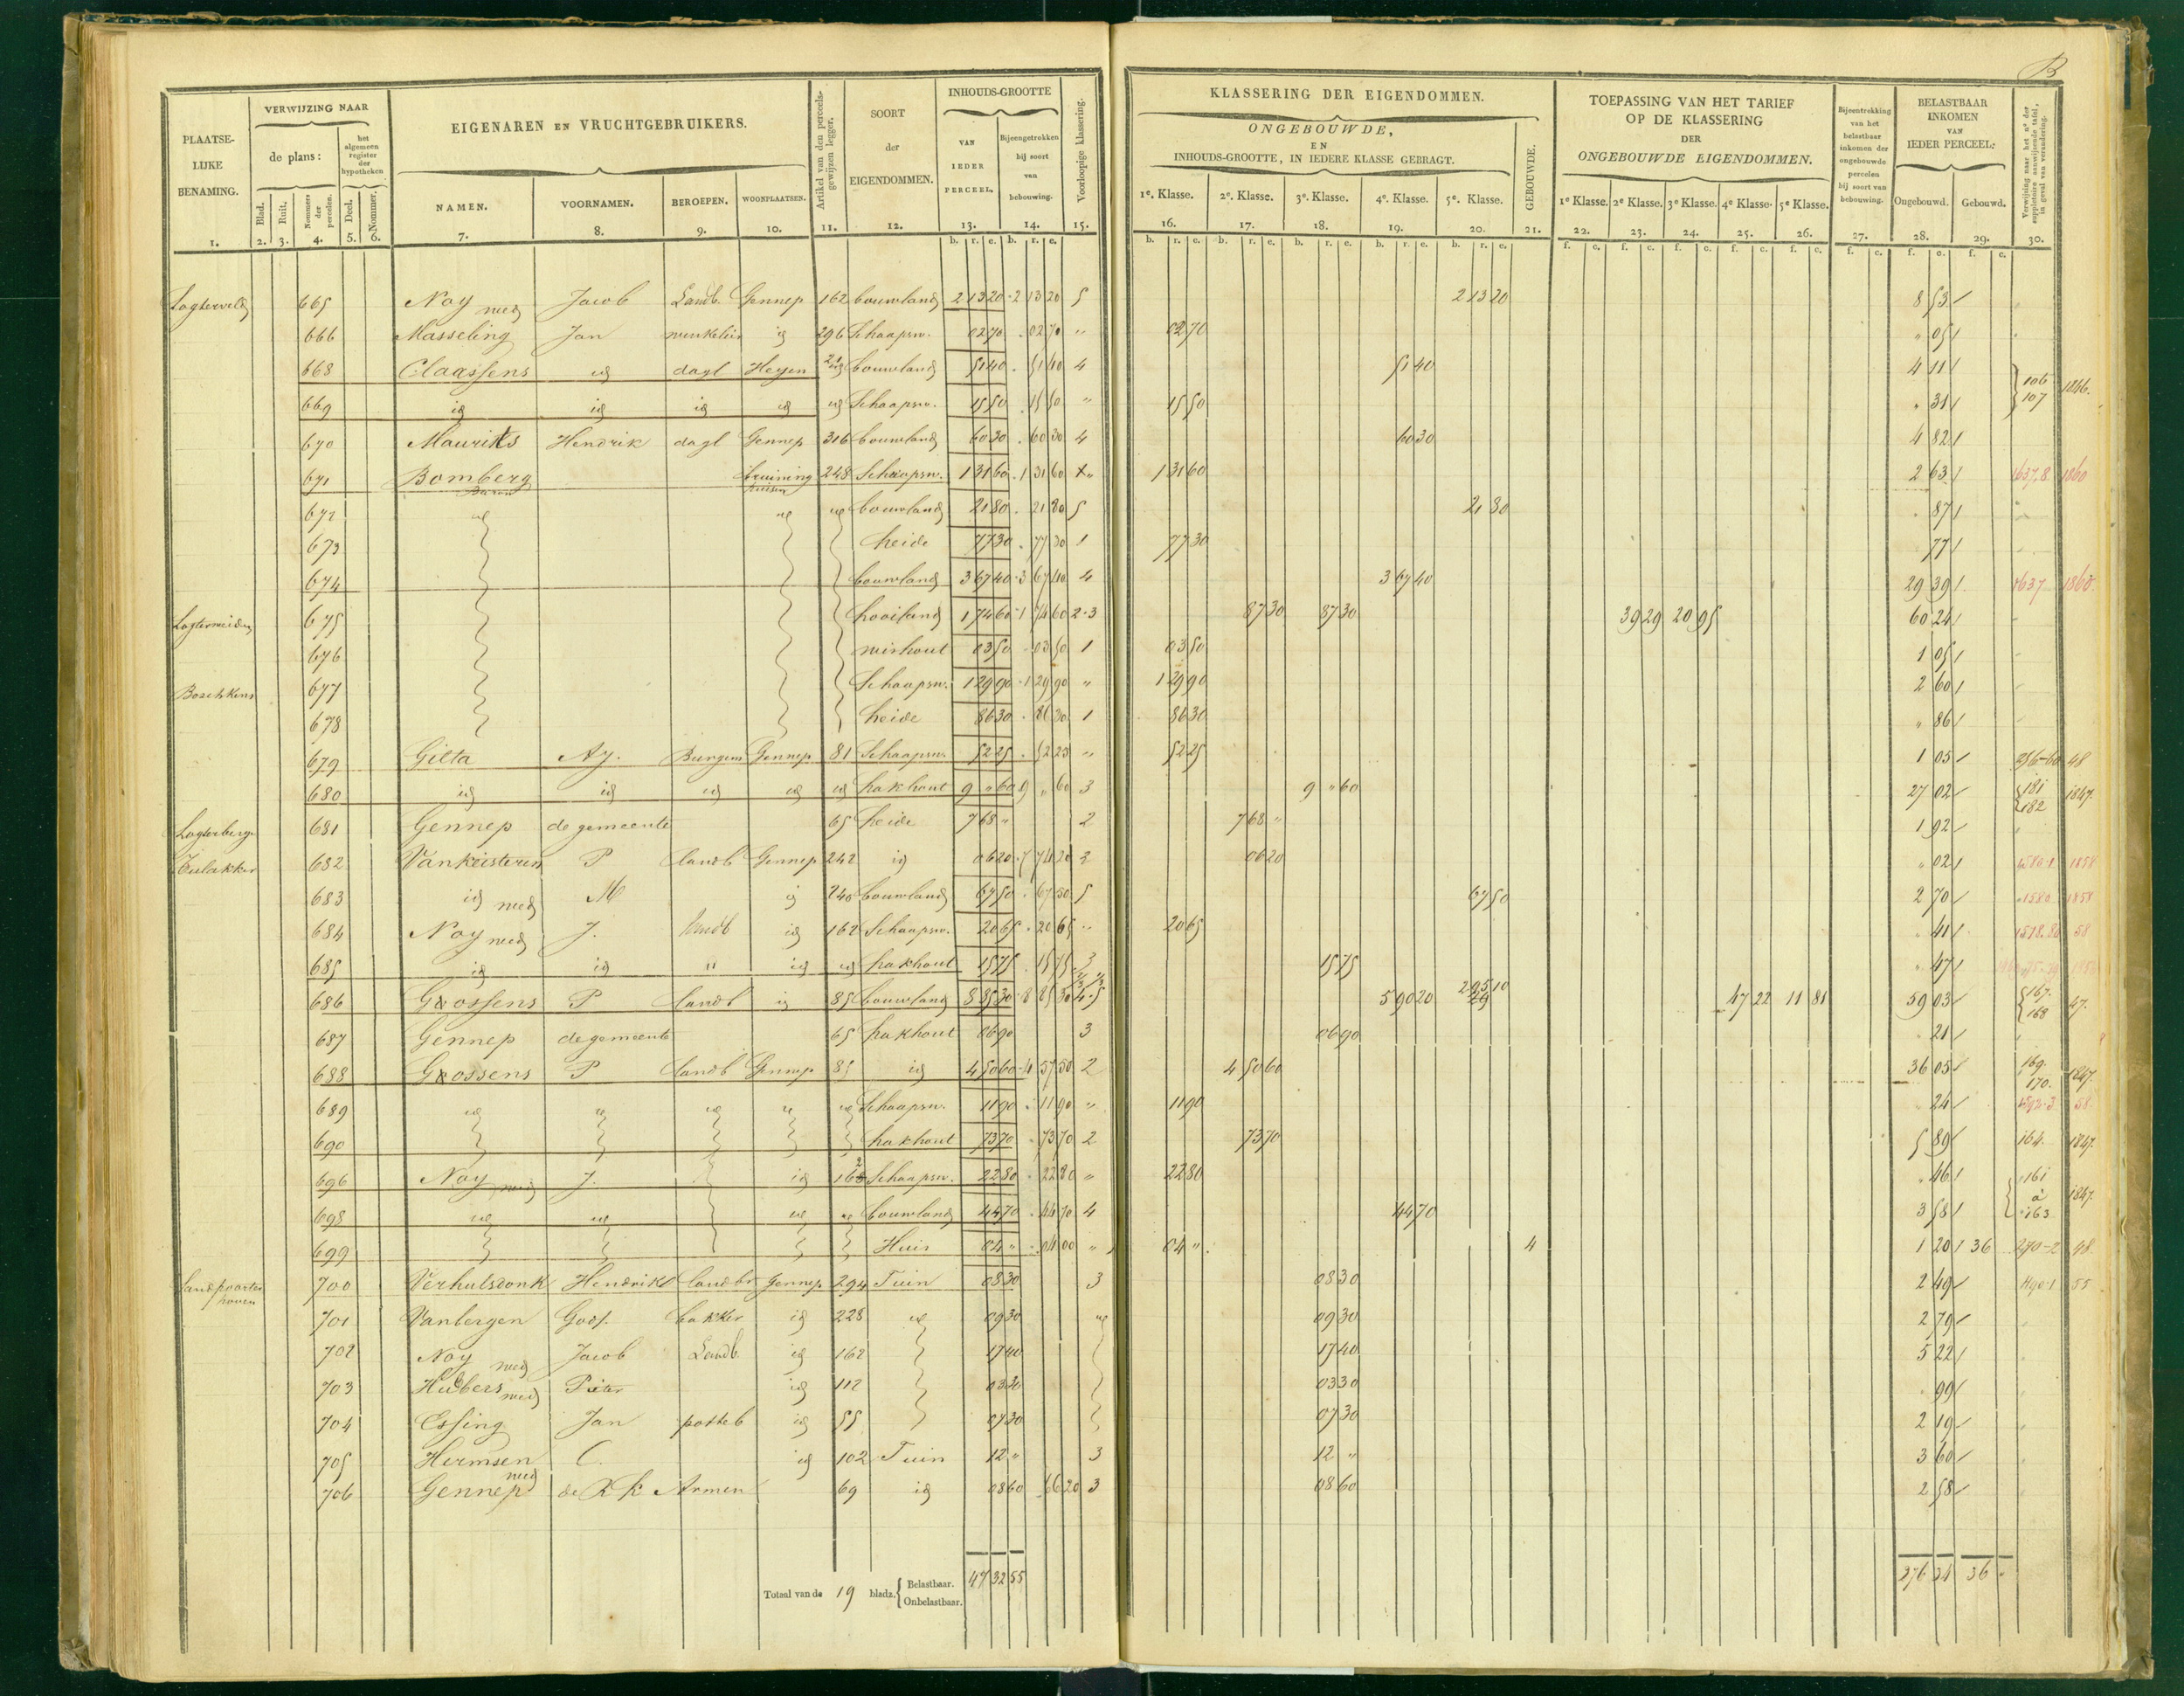 B
PLAATSELIJKE BENAMING.
VERWIJZING NAAR
de plans:
het algemeen register der hypotheken
Blad. Ruit. Nommers der perceelen. Deel. Nommer.
EIGENAREN EN VRUCHTGEBRUIKERS.
NAMEN. VOORNAMEN. BEROEPEN. WOONPLAATSEN.
Artikel van den perceels-gewijzen legger.
SOORT der EIGENDOMMEN.
INHOUDS-GROOTTE
VAN IEDER PERCEEL.
Bijeengetrokken bij soort van bebouwing.
Voorloopige klassering.
1. 2. 3. 4. 5. 6. 7. 8. 9. 10. 11. 12. 13. 14. 15.
b. r. e. b. r. e.
KLASSERING DER EIGENDOMMEN.
ONGEBOUWDE,
EN
INHOUDS-GROOTTE, IN IEDERE KLASSE GEBRAGT.
GEBOUWDE.
1e. Klasse. 2e. Klasse. 3e. Klasse. 4e. Klasse. 5e. Klasse.
16. 17. 18. 19. 20. 21.
b. r. e. b. r. e. b. r. e. b. r. e. b. r. e.
TOEPASSING VAN HET TARIEF
OP DE KLASSERING
DER
ONGEBOUWDE EIGENDOMMEN.
1e Klasse. 2e Klasse. 3e Klasse. 4e Klasse. 5e Klasse.
22. 23. 24. 25. 26.
f. c. f. c. f. c. f. c. f. c.
Bijeentrekking van het belastbaar inkomen der ongebouwde perceelen bij soort van bebouwing.
27.
f. c.
BELASTBAAR INKOMEN VAN IEDER PERCEEL:
Ongebouwd. Gebouwd.
28. 29.
f. c. f. c.
Verwijzing naar het no. der suppletoire aanwijzende tafel, in geval van verandering.
30.
Logterveld 665 Noy wed Jacob Landb. Gennep 162 bouwland 2 13 20 2 13 20 5 2 13 20 8 53
666 Masseling Jan winkelier id 296 Schaapsw. 02 70 02 70 " 02 70 " 05
668 Claassens id dagl Heyen 21 bouwland 51 40 51 40 4 51 40 4 11 106 1846.
669 id id id id id Schaapsw. 15 50 15 50 " 15 50 " 31 107
670 Maurits Hendrik dagl Gennep 316 bouwland 60 30 60 30 4 60 30 4 82
671 Bomberg Baron 248 Schaapsw. 1 31 60 1 31 60 " 1 31 60 2 63 1637.8 1860
672 id id id bouwland 21 80 21 80 5 21 80 87
673 heide 77 30 77 30 1 77 30 77
674 bouwland 3 67 40 3 67 40 4 3 67 40 29 39 1637 1860
Logterweiden 675 hooiland 1 74 60 1 74 60 2.3 87 30 87 30 39 29 20 95 60 24
676 wishout 03 50 03 50 1 03 50 1 05
Boschkens 677 Schaapsw. 1 29 90 1 29 90 " 1 29 90 2 60
678 heide 86 30 86 30 1 86 30 " 86
679 Gilta Ay. Burgem Gennep 81 Schaapsw. 52 25 52 25 " 52 25 1 05 48
680 id id id id id hakhout 9 " 60 9 " 60 3 9 " 60 27 02 181 182 1847.
Logterberge 681 Gennep de gemeente 65 heide 7 68 " 2 7 68 " 1 92
682 P landb Gennep 242 id 06 20 7 74 20 2 06 20 " 02 1580.1 1858
683 id wed M id 240 bouwland 67 50 67 50 5 67 50 2 70 1580 1858
684 Noy wed J. landb id 162 Schaapsw. 20 65 20 65 " 20 65 41 58
685 id id " id id hakhout 15 75 15 75 3 15 75 " 47
686 Grossens P landb id 85 bouwland 8 85 30 8 85 30 4.5 5 90 20 2 95 10 47 22 11 81 59 03 167. 168 47.
687 Gennep de gemeente 65 hakhout 06 90 3 06 90 21
688 Grossens P landb Gennep 85 id 4 50 60 4 57 50 2 4 50 60 36 05 169. 170. 1847.
689 id id id id id Schaapsw. 11 90 11 90 " 11 90 24 58
690 hakhout 73 70 73 70 2 73 70 5 89 164. 1847.
696 Noy wed J. id 162 Schaapsw. 22 80 22 80 " 22 80 " 46 161
698 id id id id bouwland 44 70 44 70 4 44 70 3 58 à 163 1847.
699 Huis 04 " 04 00 " 04 " 4 1 20 36 270-2 48
Landpoorten hoven 700 Verhulsdonk Hendrik landbr Gennep 294 Tuin 08 30 3 08 30 2 49 1190.1 55
701 Vanbergen Godf. bakker id 228 id 09 30 id 09 30 2 79
702 Noy wed Jacob Landb. id 162 17 40 17 40 5 22
703 Hubers wed Pieter id 112 03 30 03 30 99
704 Essing Jan potteb id 55 07 30 07 30 2 19
705 Hermsen wed C. id 102 Tuin 12 " 3 12 " 3 60
706 Gennep de R K Armen 69 id 08 60 66 20 3 08 60 2 58
Totaal van de 19 bladz. Belastbaar. 47 32 55 276 24 36 "
Onbelastbaar.